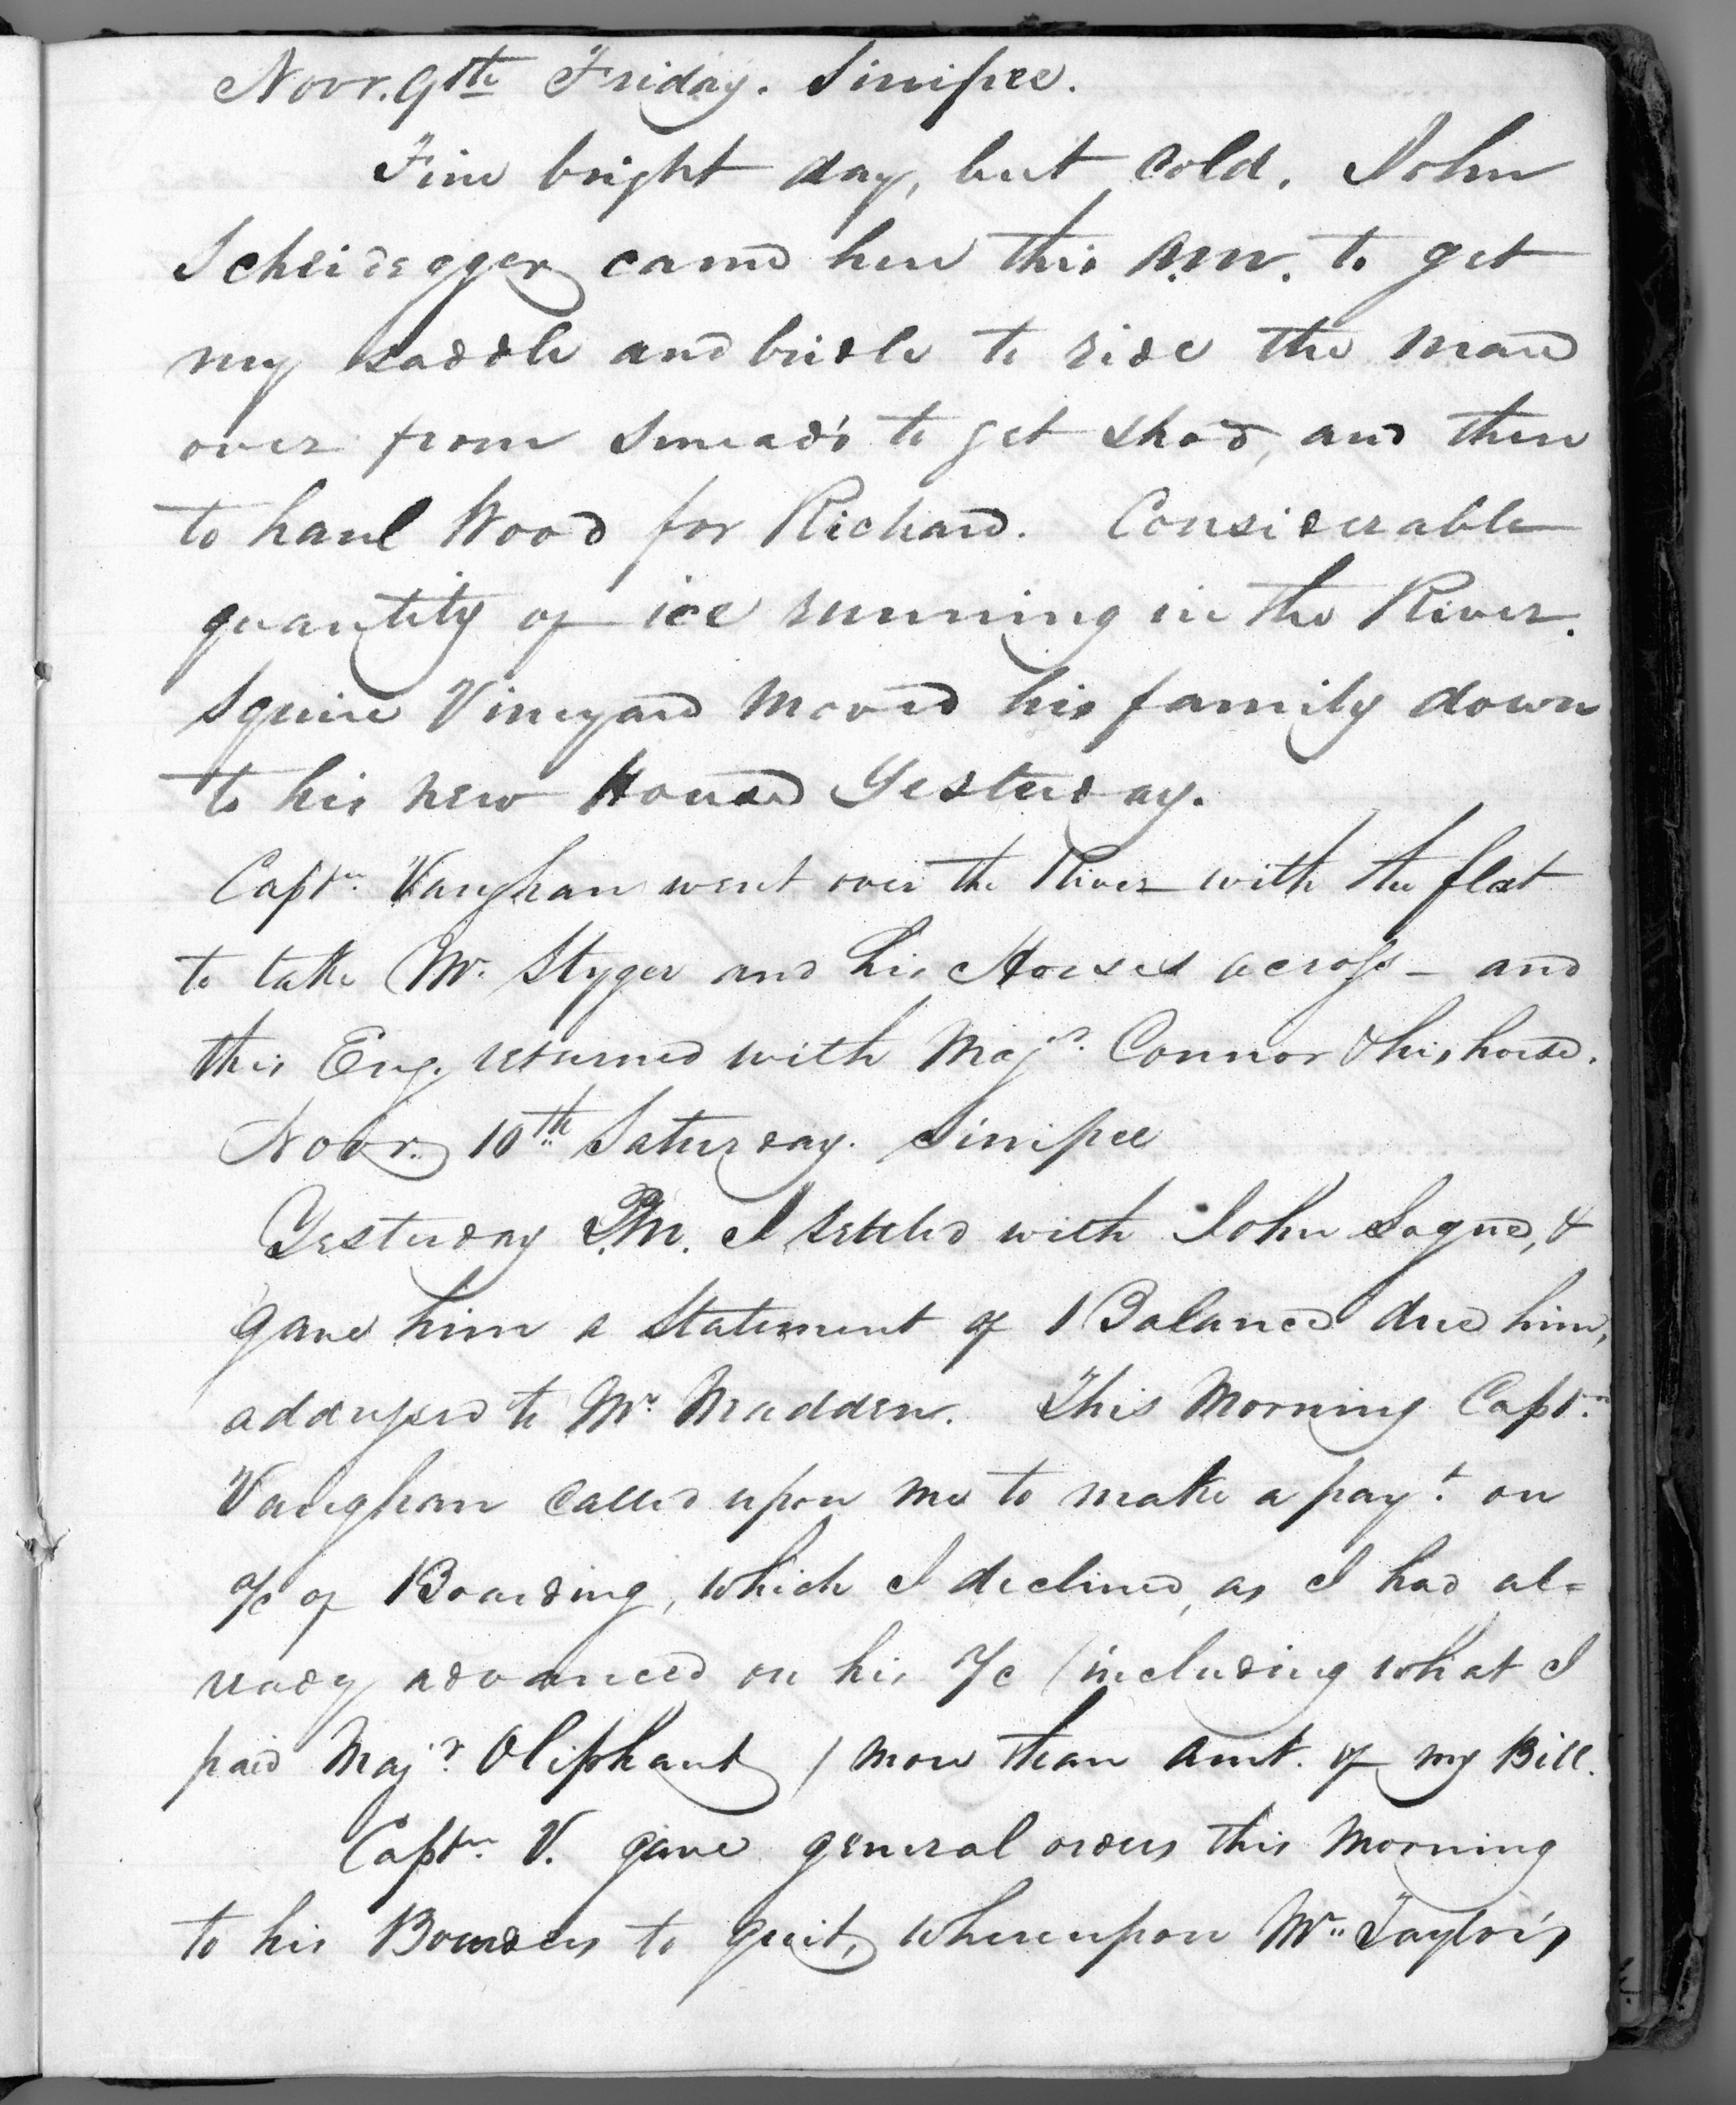 Novr. 9th Friday. Sinipee.
Fine bright day, but cold. John
Scheidegger came here this A.M. to get
my saddle and bridle to ride the mare
over from Smead's to get shod, and then
to haul Wood for Richard. Considerable
quantity of ice running in the River.
Squire Vineyard moved his family down
to his new House Yesterday.
Captn. Vaughan went over the River with the flat
to take Mr. Styger and his Horses across - and
this Eng. returned with Majr. Connor & his horse.
Novr. 10th Saturday. Sinipee
Yesterday P.M. I settled with John &
gave him a Statement of Balance due him,
addressed to Mr. Madden. This Morning Captn.
Vaughan called upon me to make a payt. on
a/c of Boarding, which I declined, as I had al=
ready advanced on his a/c (including what I
paid Majr. Oliphant) more than amt. of my Bill.
Captn. V. gave general orders this morning
to his Boarders to quit, whereupon Mr. Taylor's